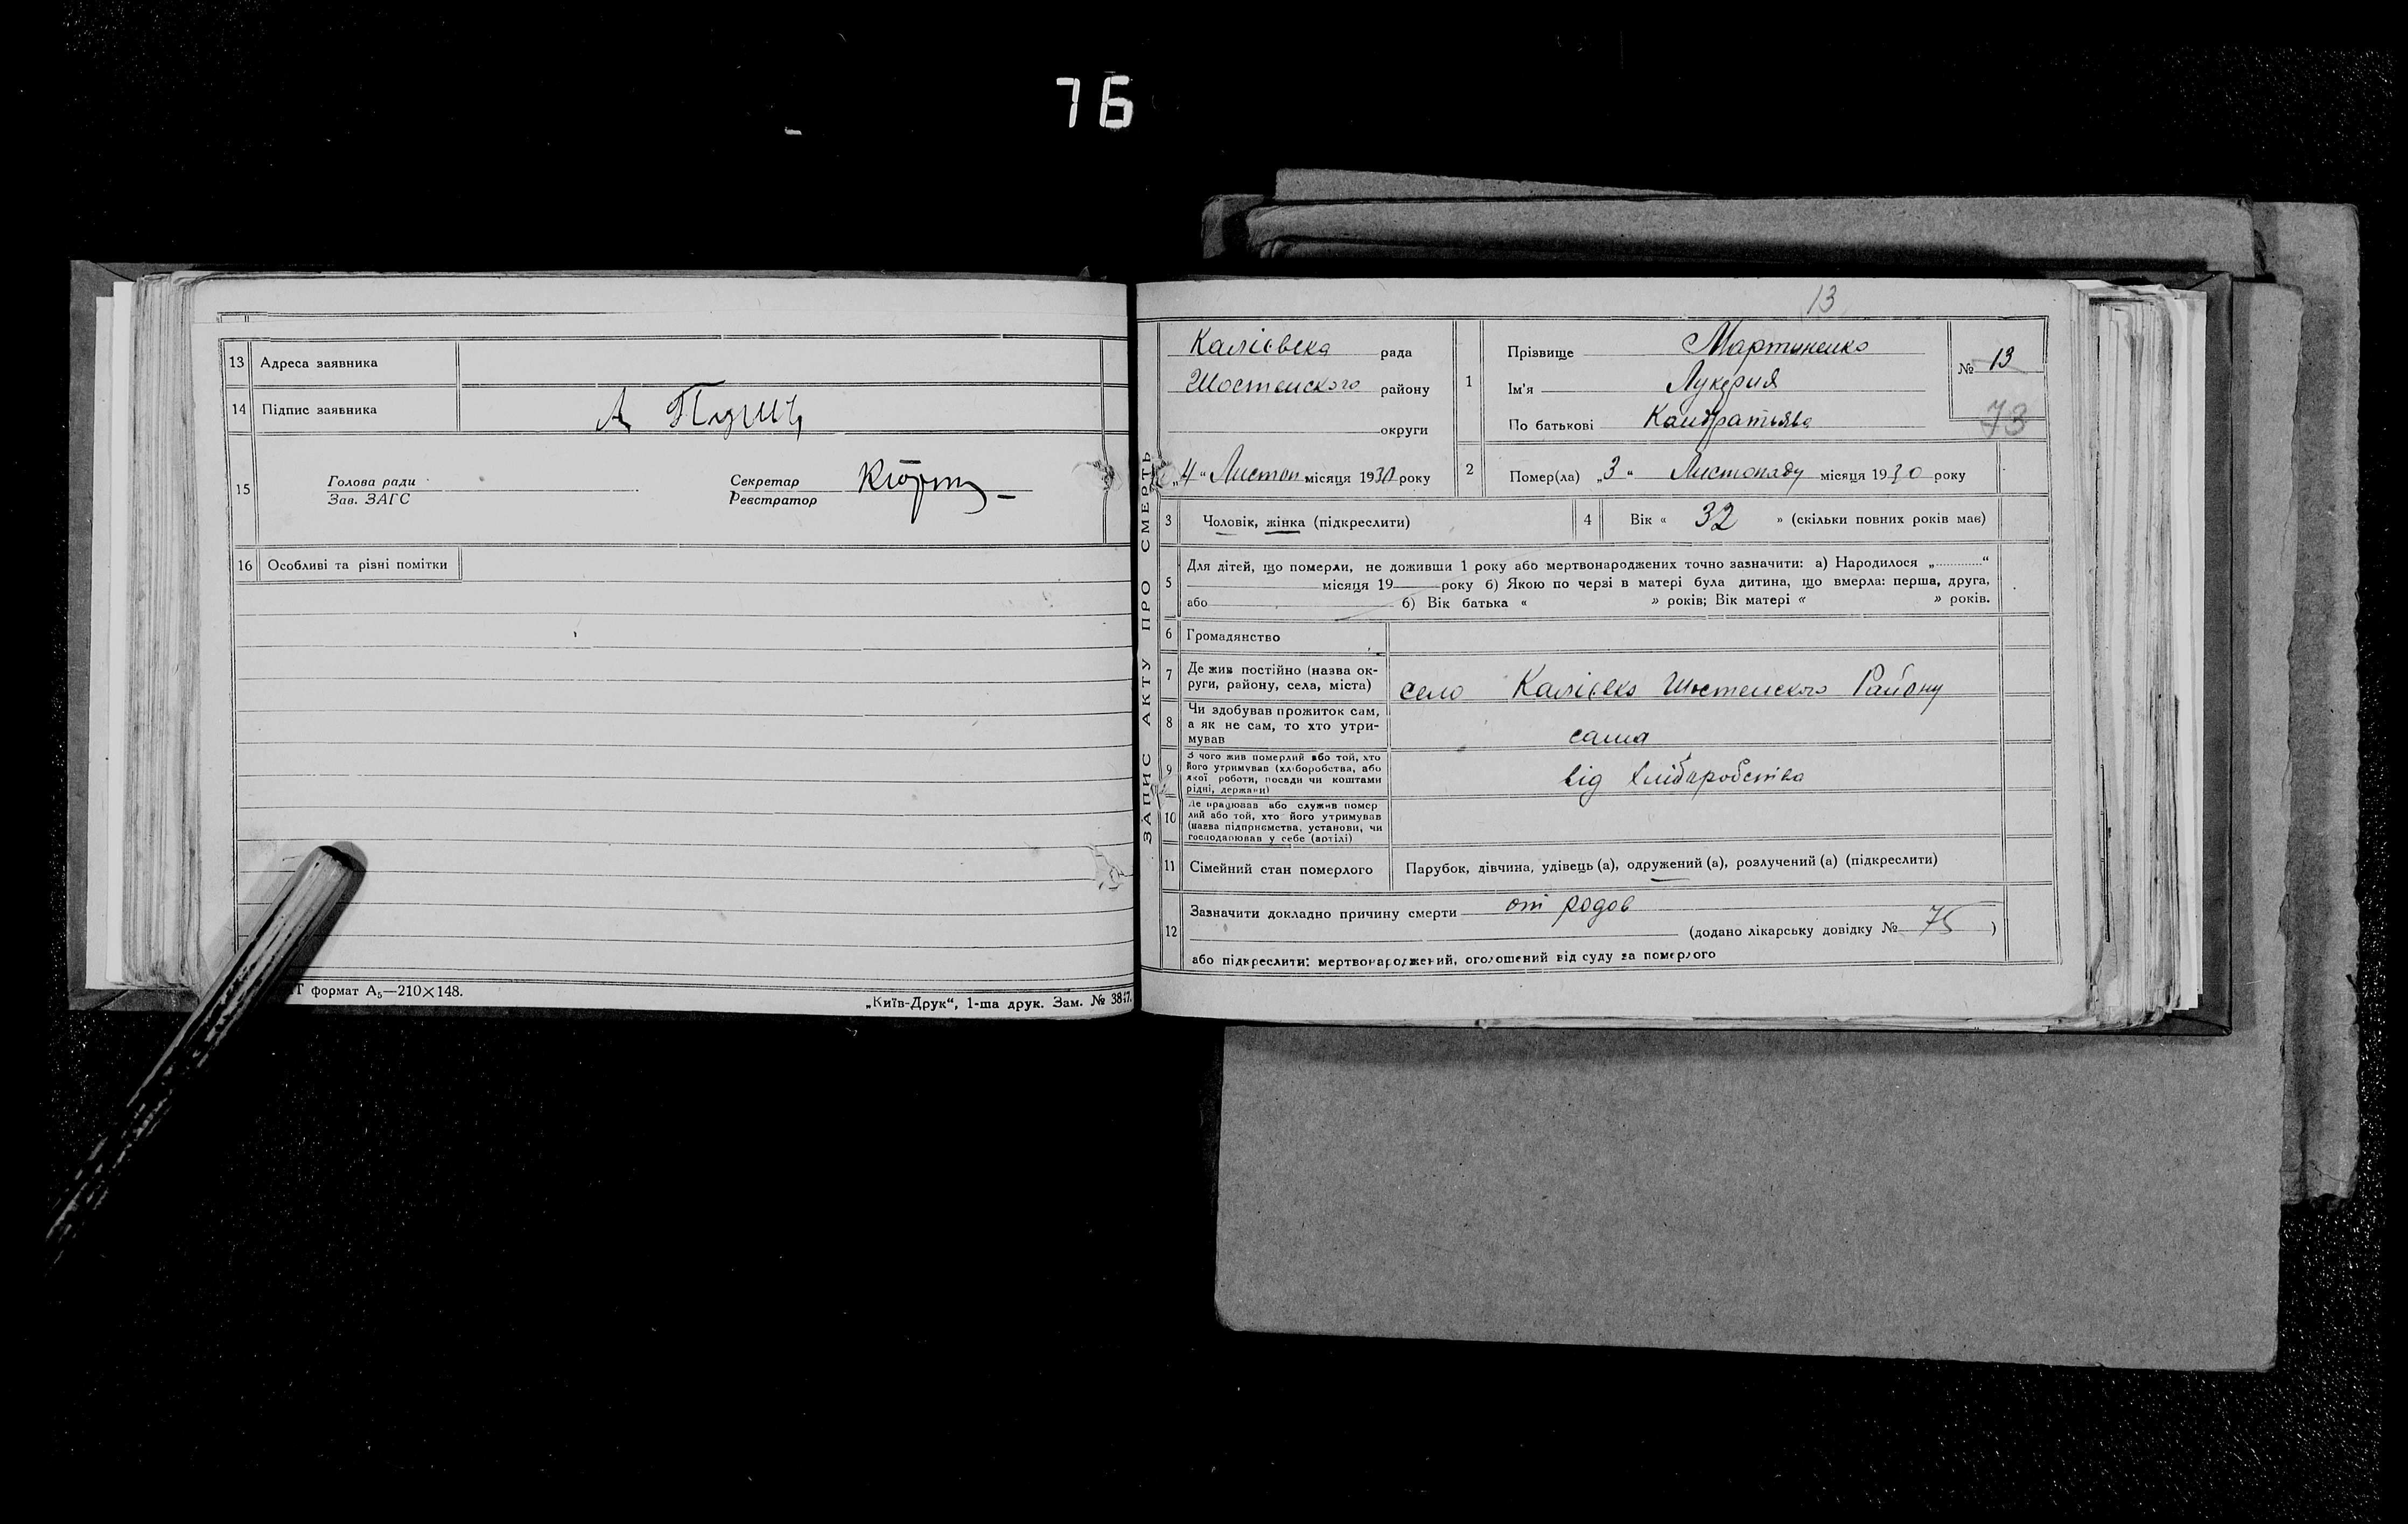 76
13 Адреса заявника
14 Підпис заявника
15 Голова ради Секретар
Зав. ЗАГС Реєстратор
16 Особливі та різні помітки
формат А5—210×148.
„Київ-Друк“, 1-ша друк. Зам. № 3817.
13
ЗАПИС АКТУ ПРО СМЕРТЬ
Калієвска рада
Шостенского району
округи
„4“ Листоп місяця 1930 року
1 Прізвище Мартиненко
Ім'я Лукерия
По батькові Кандратьява
№ 13
73
2 Помер(ла) „3“ Листопаду місяця 1930 року
3 Чоловік, жінка (підкреслити)
4 Вік « 32 » (скільки повних років має)
5 Для дітей, що померли, не доживши 1 року або мертвонароджених точно зазначити: а) Народилося „ “
місяця 19 року б) Якою по черзі в матері була дитина, що вмерла: перша, друга,
або б) Вік батька « » років; Вік матері « » років.
6 Громадянство
7 Де жив постійно (назва ок-
руги, району, села, міста) село Калієвка Шостенского Району
8 Чи здобував прожиток сам,
а як не сам, то хто утри-
мував сама
9 З чого жив померлий або той, хто
його утримував (хліборобства, або
якої роботи, посади чи коштами
рідні, держави) від хлібаробства
10 Де працював або служив помер
лий або той, хто його утримував
(назва підприємства, установи, чи
господарював у себе (артілі)
11 Сімейний стан померлого Парубок, дівчина, удівець (а), одружений (а), розлучений (а) (підкреслити)
12 Зазначити докладно причину смерти от родов
(додано лікарську довідку № 75 )
або підкреслити: мертвонароджений, оголошений від суду за померлого